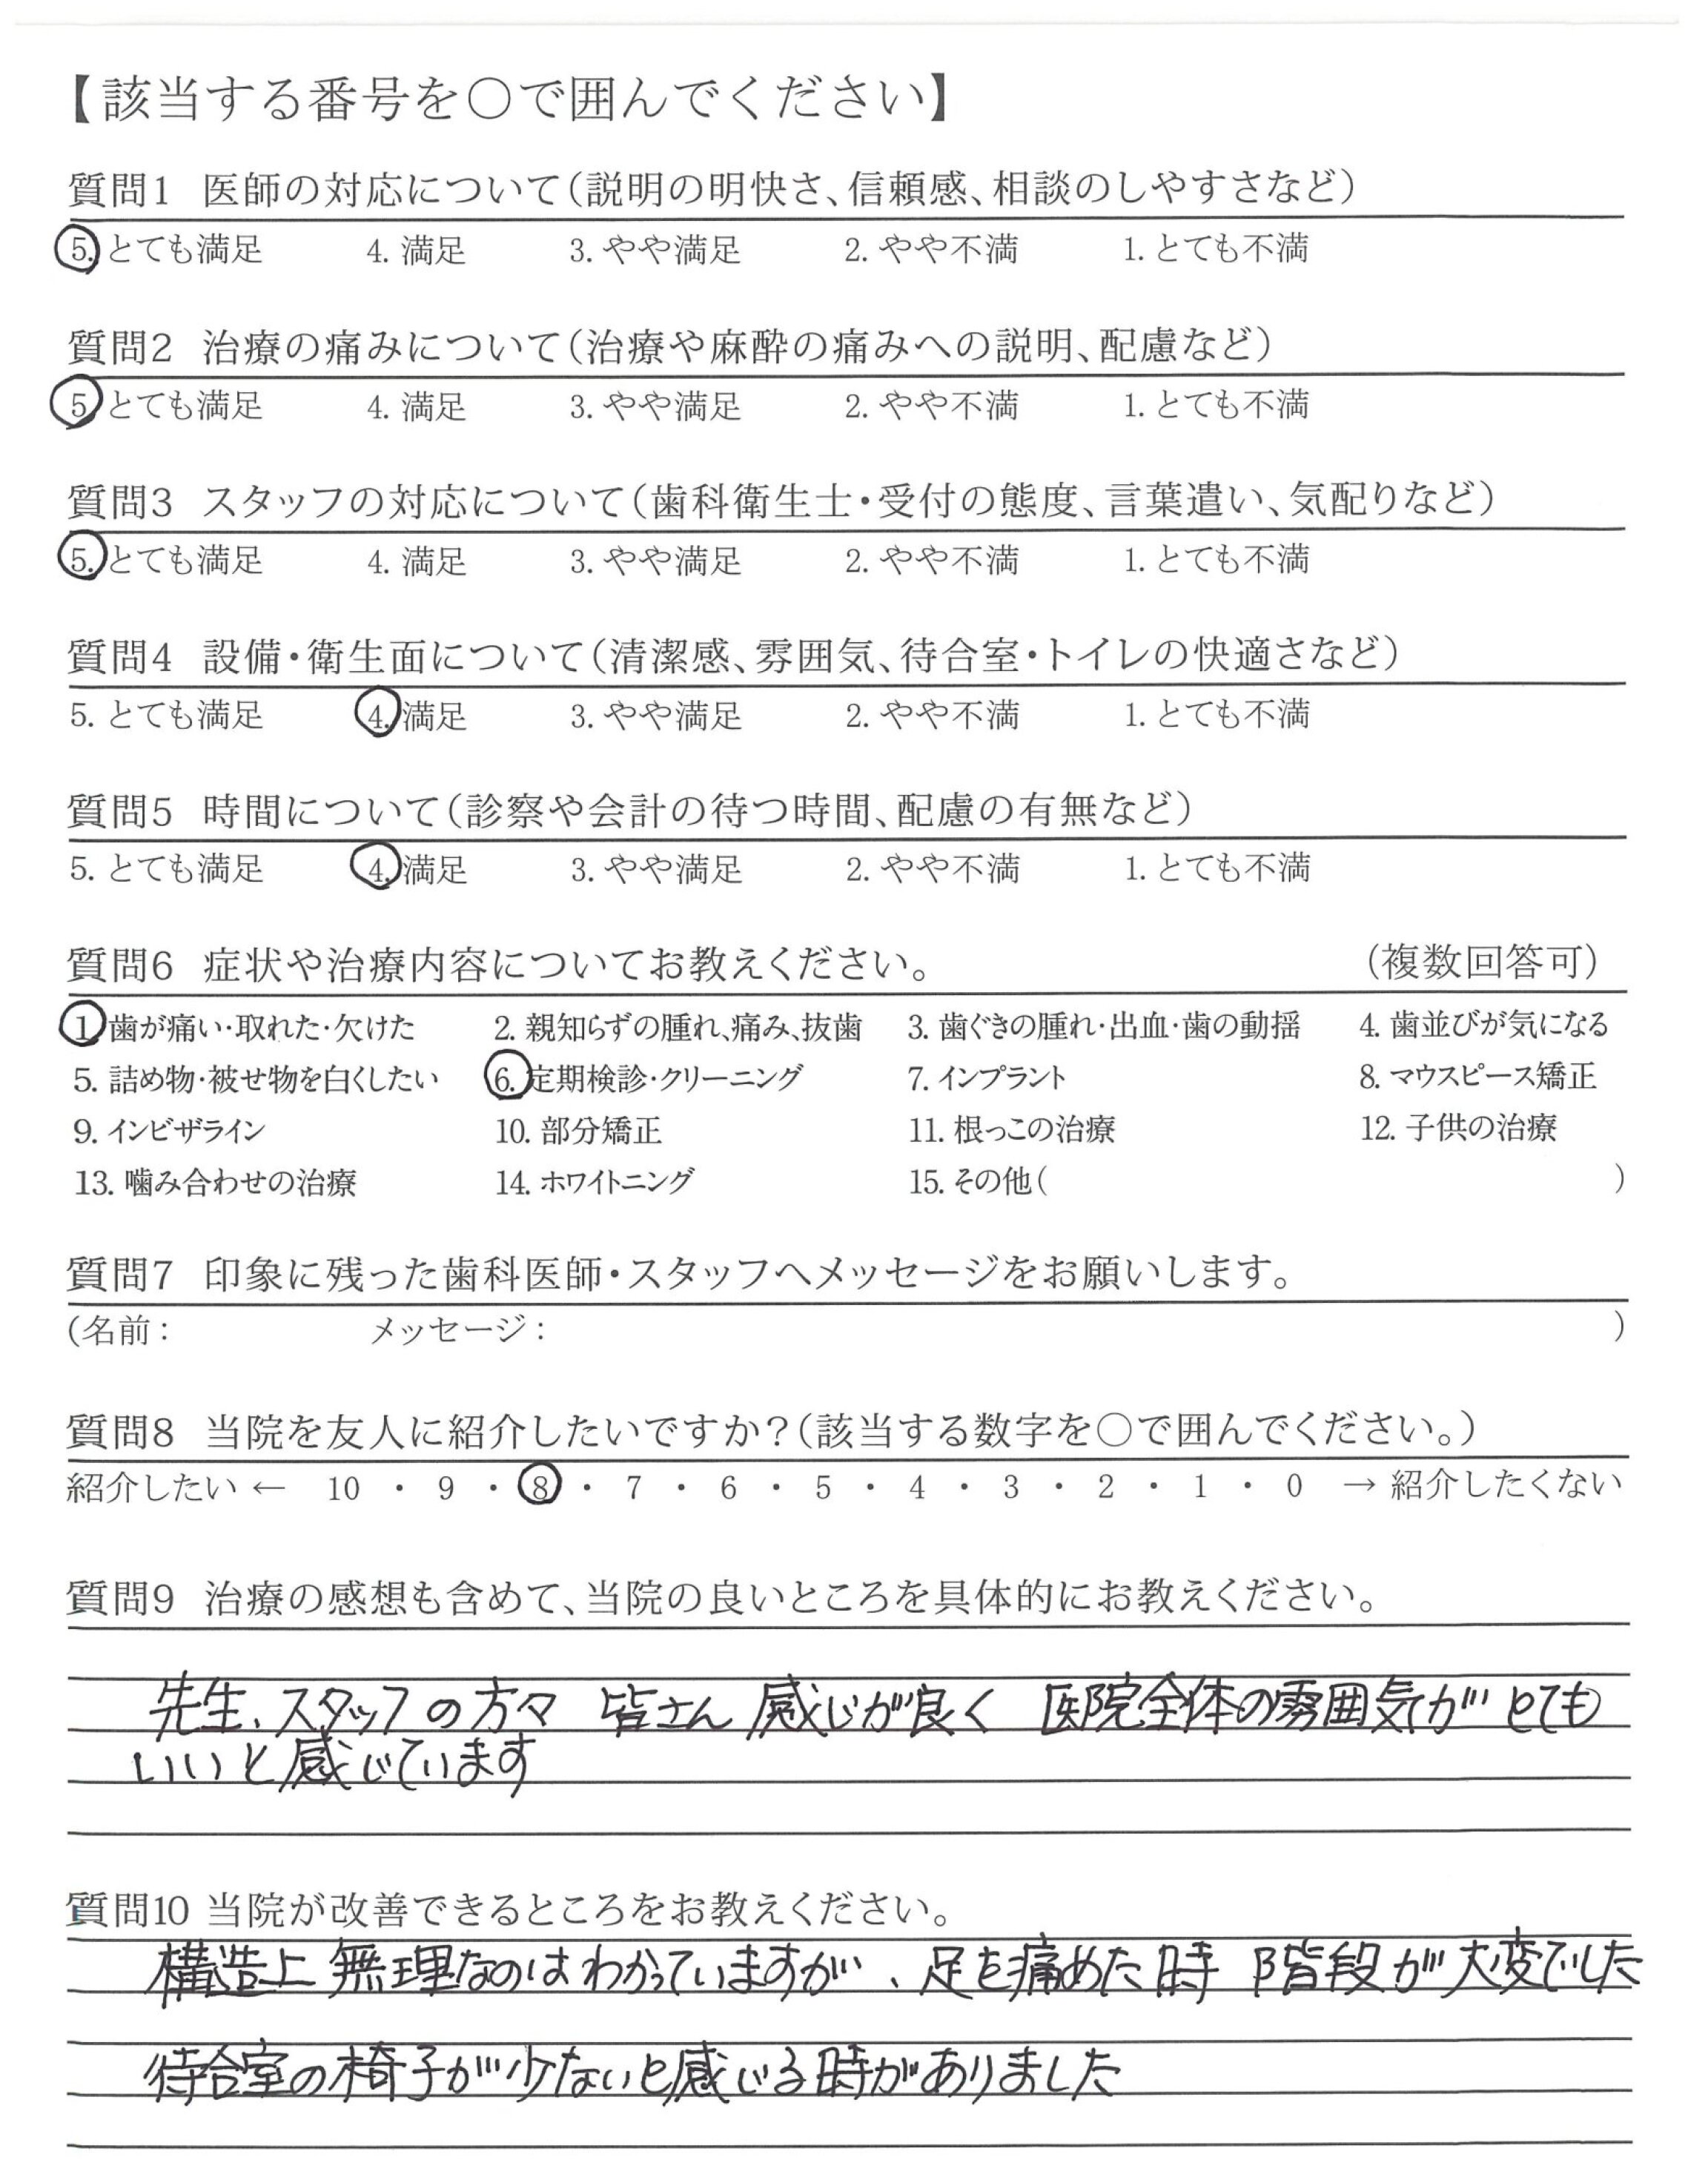 【該当する番号を○で囲んでください】
質問1 医師の対応について(説明の明快さ、信頼感、相談のしやすさなど)
5. とても満足 4. 満足 3. やや満足 2. やや不満 1. とても不満
質問2 治療の痛みについて(治療や麻酔の痛みへの説明、配慮など)
5 とても満足 4. 満足 3. やや満足 2. やや不満 1. とても不満
質問3 スタッフの対応について(歯科衛生士・受付の態度、言葉遣い、気配りなど)
5. とても満足 4. 満足 3. やや満足 2. やや不満 1. とても不満
質問4 設備・衛生面について(清潔感、雰囲気、待合室・トイレの快適さなど)
5. とても満足 4. 満足 3. やや満足 2. やや不満 1. とても不満
質問5 時間について(診察や会計の待つ時間、配慮の有無など)
5. とても満足 4. 満足 3. やや満足 2. やや不満 1. とても不満
質問6 症状や治療内容についてお教えください。 (複数回答可)
1 歯が痛い・取れた・欠けた 2. 親知らずの腫れ、痛み、抜歯 3. 歯ぐきの腫れ・出血・歯の動揺 4. 歯並びが気になる
5. 詰め物・被せ物を白くしたい 6. 定期検診・クリーニング 7. インプラント 8. マウスピース矯正
9. インビザライン 10. 部分矯正 11. 根っこの治療 12. 子供の治療
13. 噛み合わせの治療 14. ホワイトニング 15. その他( )
質問7 印象に残った歯科医師・スタッフへメッセージをお願いします。
(名前： メッセージ： )
質問8 当院を友人に紹介したいですか？(該当する数字を○で囲んでください。)
紹介したい ← 10 ・ 9 ・ 8 ・ 7 ・ 6 ・ 5 ・ 4 ・ 3 ・ 2 ・ 1 ・ 0 → 紹介したくない
質問9 治療の感想も含めて、当院の良いところを具体的にお教えください。
先生、スタッフの方々 皆さん感じが良く 医院全体の雰囲気がとても
いいと感じています
質問10 当院が改善できるところをお教えください。
構造上 無理なのはわかっていますが、足を痛めた時 階段が大変でした
待合室の椅子が少ないと感じる時がありました